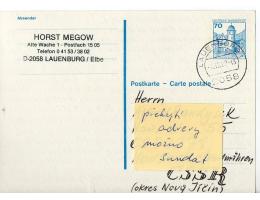 Absender
HORST MEGOW
Alte Wache 1 - Postfach 15 05
Telefon 0 41 53 / 38 02
D-2058 LAUENBURG / Elbe
70
2058
Postkarte - Carte postale
Herrn
prekryti
adresy
možno
sundat
ČSSR
(okres Nový Jičín)